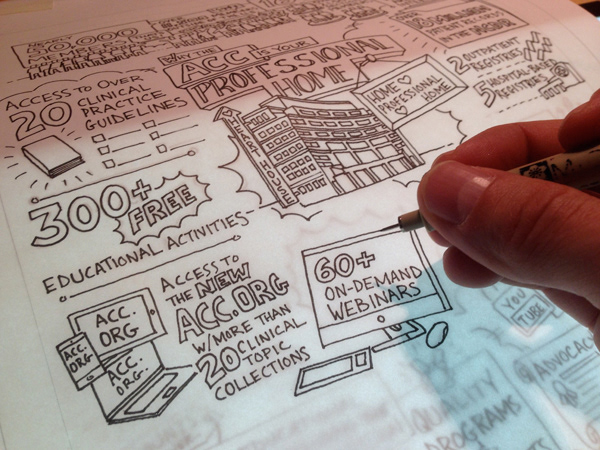 NEARLY
50,000
MEMBERS
WHY THE
ACC IS YOUR
PROFESSIONAL
HOME
ACCESS TO OVER
20 CLINICAL
PRACTICE
GUIDELINES
HEART HOUSE
HOME
PROFESSIONAL
HOME
2 OUTPATIENT
REGISTRIES
5 HOSPITAL-BASED
REGISTRIES
300+
FREE
EDUCATIONAL ACTIVITIES
ACC.
ORG
ACC.
ORG
ACC.
ORG.
ACCESS TO
THE NEW
ACC.ORG
W/MORE THAN
20 CLINICAL
TOPIC
COLLECTIONS
60+
ON-DEMAND
WEBINARS
YOU
TUBE
QUALITY
PROGRAMS
ADVOCAC